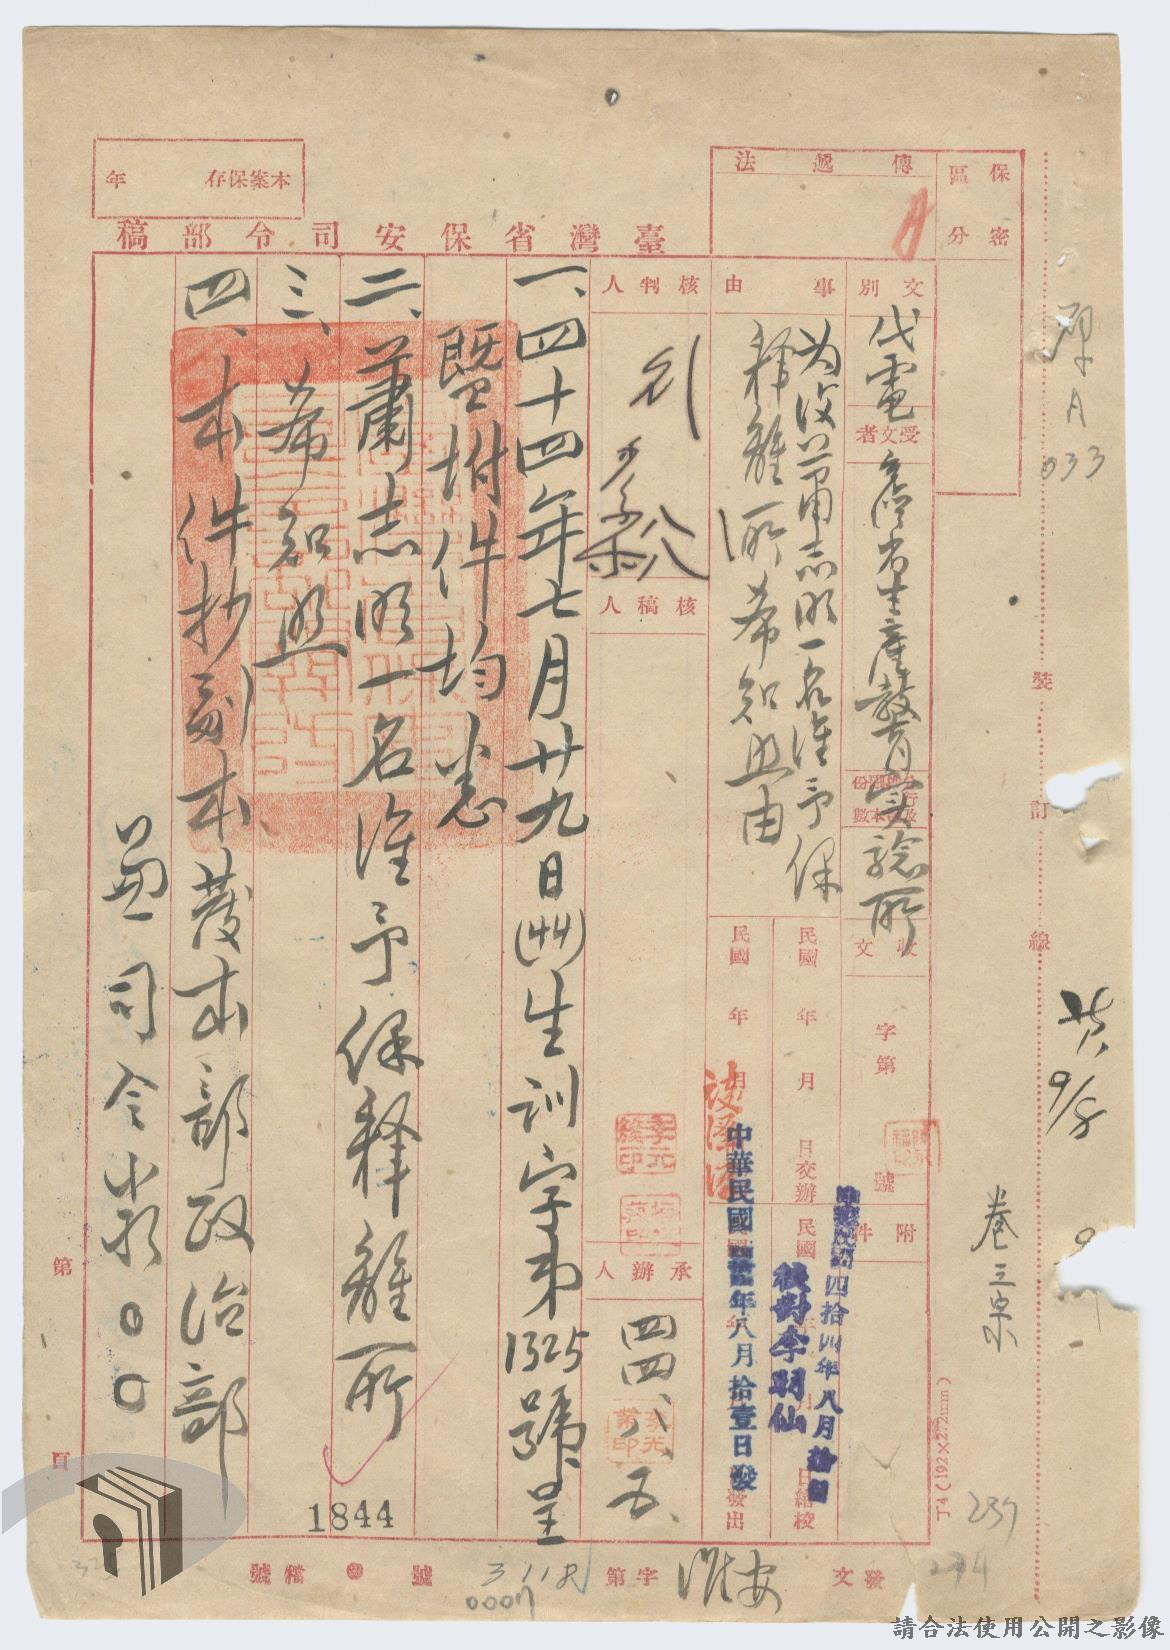 保密
區分
傳遞法
本案保存　　年
臺灣省保安司令部稿
文別
代電
受文者
臺灣省生產教育實驗所
事由
為復蕭志明一名准予保
釋離所希知照由
核判人
核稿人
承辦人
四四、八、五、
收文　字第　號
附件
民國　年　月　日交辦
民國　年　月　日繕校
民國　年　月　日發出
中華民國四拾四年八月拾
校對李羽仙
中華民國　年八月拾壹日發
一、四十四年七月廿九日(44)生訓字第1325號呈
暨附件均悉
二、蕭志明一名准予保釋離所
三、希知照
四、本件抄副本發本部政治部
兼司令
第　頁
1844
發文
安
字第
3118
號
檔號
0007
裝
訂
線
A
033
9/8
卷三宗
237
274
丁4(192×272mm)
請合法使用公開之影像